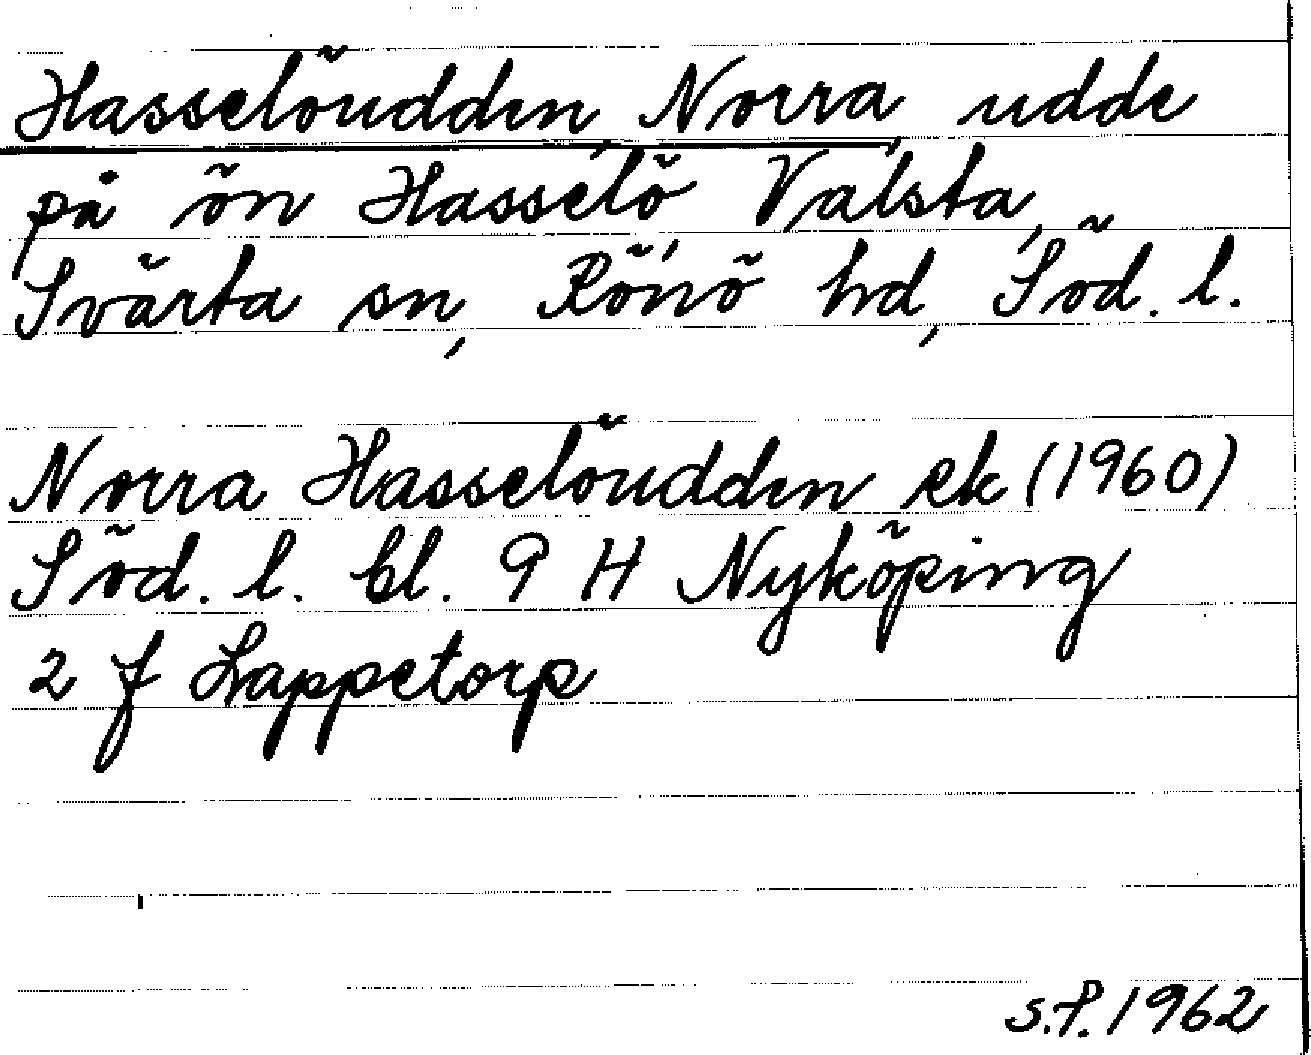 Hasselöudden, Norra, udde
på ön Hasselö, Valsta,
Svärta sn, Rönö hd, Söd. l.
Norra Hasselöudden ek (1960)
Söd. l. bl. 9 H Nyköping
2 f Lappetorp
S.P. 1962